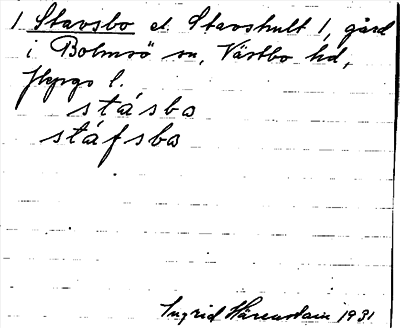 1 Stavsbo el. Stavshult 1, gård
i Bolmsö sn, Västbo hd,
Jkpgs l.
stásbo
stáfsbo
Ingrid 1931